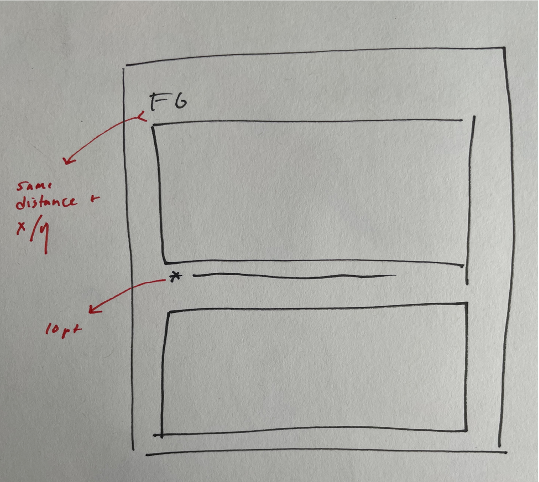 FG
same
distance +
x/y
*
10pt